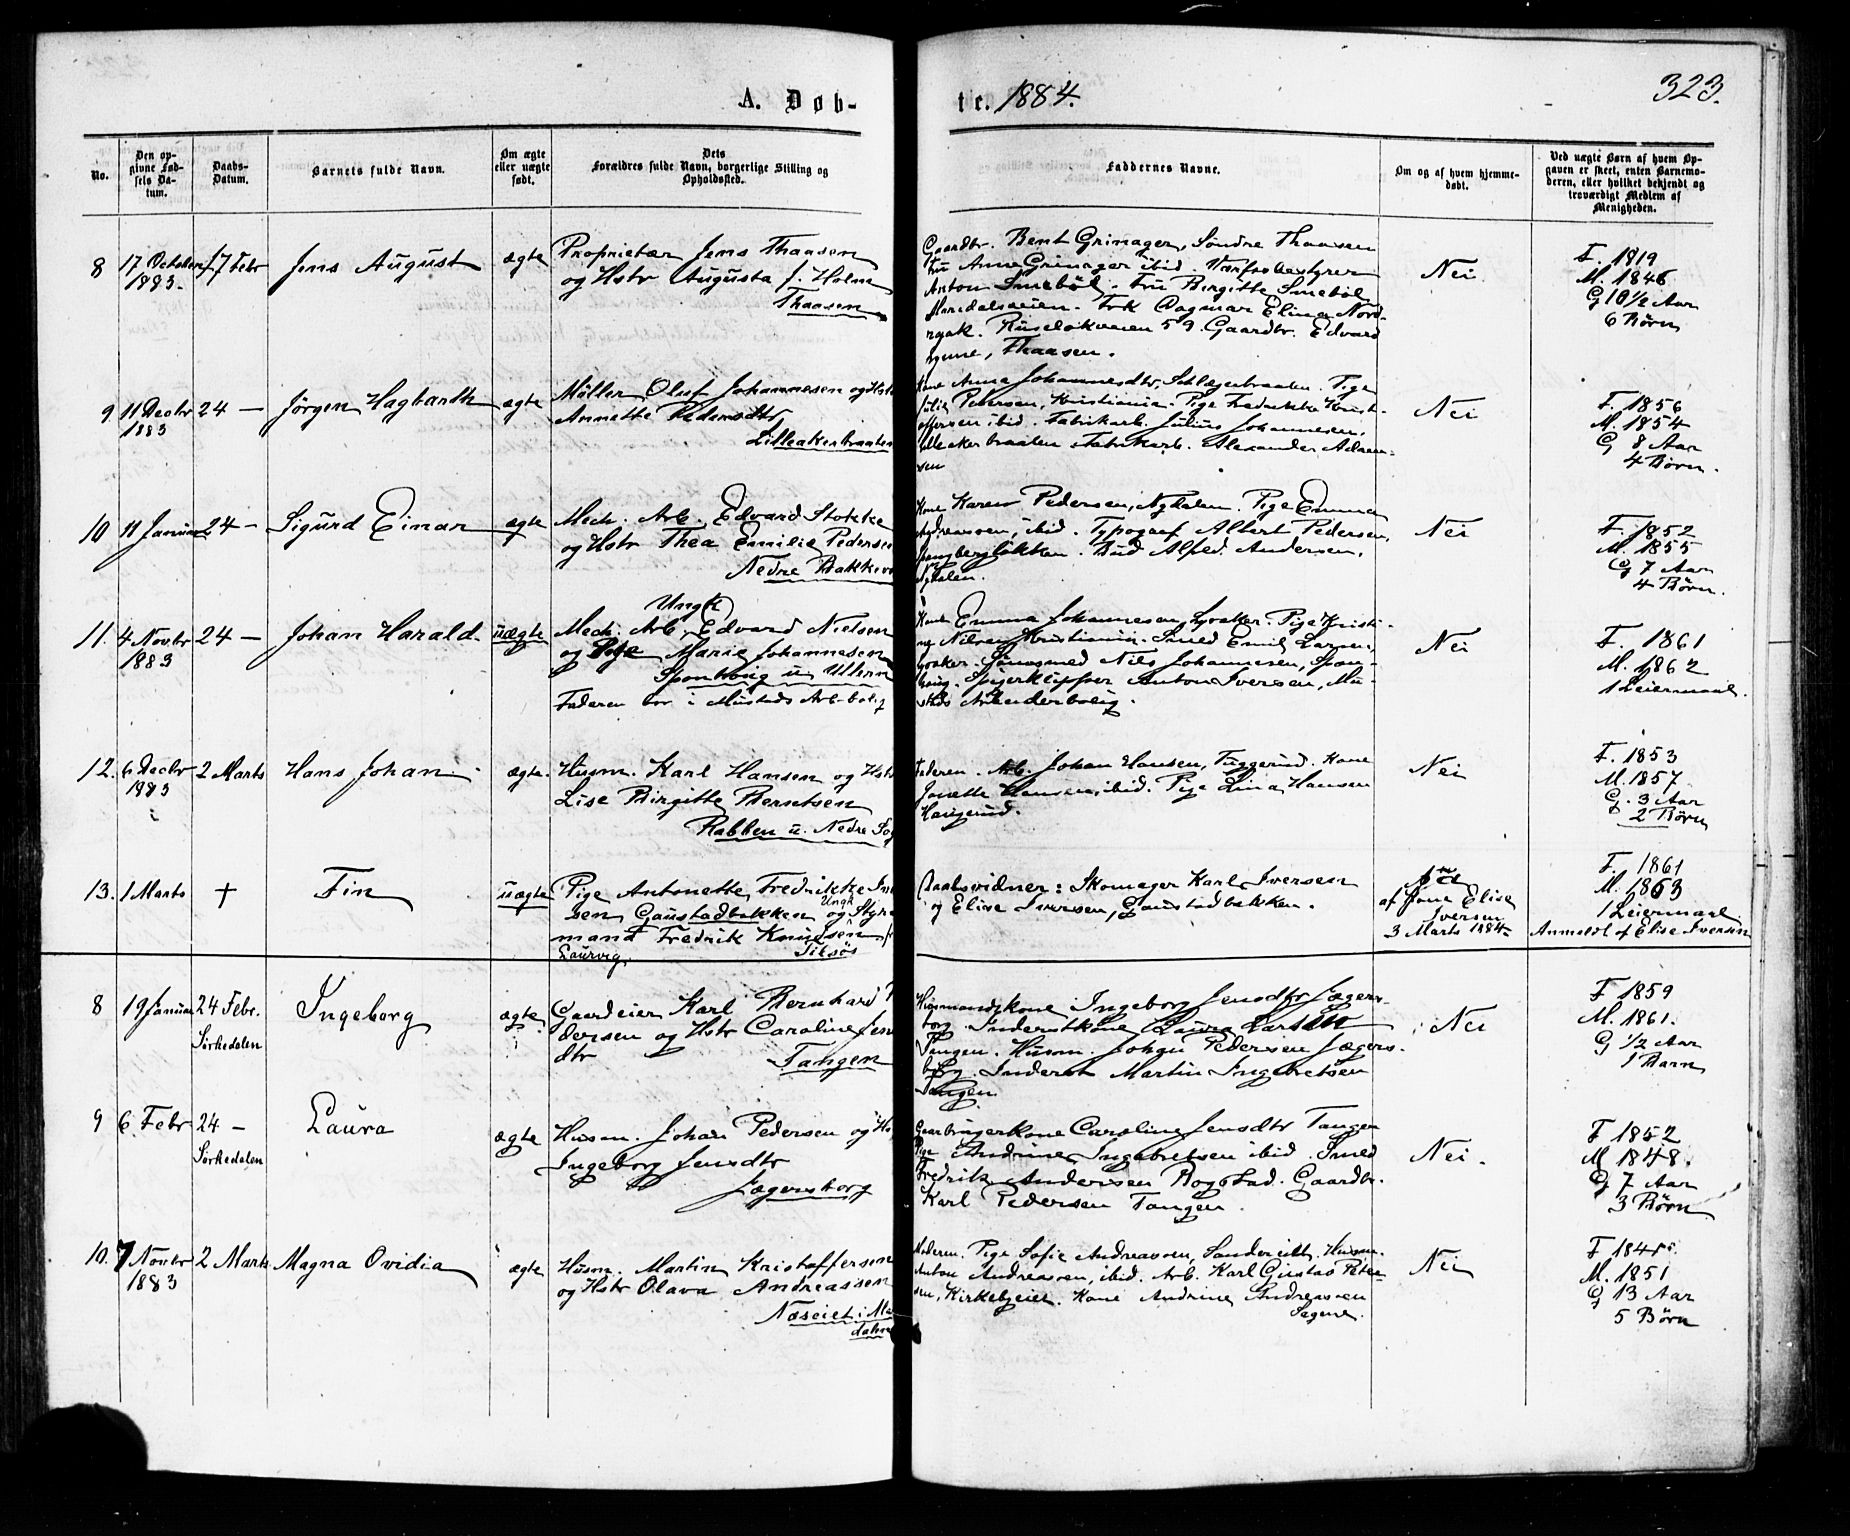 323.
A. Døb-
te. 1884.
No.
Den op-
givne Fød-
sels Da-
tum.
Daabs-
Datum.
Barnets fulde Navn.
Om ægte
eller uægte
født.
Dets
Forældres fulde Navn, borgerlige Stilling og
Opholdssted.
Faddernes Navne.
Om og af hvem hjemme-
døbt.
Ved uægte Børn af hvem Op-
gaven er skeet, enten Barnemo-
deren, eller hvilket bekjendt og
troværdigt Medlem af
Menigheden.
8
17 October
1883.
17 Febr
Jens August
ægte
Proprietær Jens Thaasen
og Hstr Augusta f. Holm
Thaasen
Gaardbr. Bent Grimager, Søndre Thaasen
Fru Anne Grimager ibid. Værfsbestyrer
Anton Smebøl. Fru Birgitte Smebøl
Maridalsveien. Frk Dagmar Elina Nord-
Ruseløkveien 59. Gaardbr. Edvard
Thaasen.
Nei
F. 1819
M. 1846
G 10½ Aar
6 Børn
9
11 Decbr
1883
24 —
Jørgen Hagbarth
ægte
Møller Oluf Johannesen og Hstr
Annette Pedersdtr
Lilleakerbraaten
Kone Anna Johannesdtr, Pige
Julie Petersen, Kristiania. Pige Fredrikke Krist-
offersen ibid. Fabrikarb. Julius Johannesen,
Lilleakerbraaten. Fabrikarb. Alexander Adam-
sen
Nei
F. 1856
M. 1854
G 8 Aar
4 Børn.
10
11 Januar
24 —
Sigurd Einar
ægte
Mech. Arb. Edvard Stokke
og Hstr Thea Emilie Pedersen
Nedre Bakke
Kone Karen Pedersen, Nydalen. Pige Emma
Andreassen, ibid. Typograf Albert Pedersen,
Bud Alfred Andersen,
Nydalen.
Nei
F. 1852
M. 1855
G 7 Aar
4 Børn.
11.
4 Novbr
1883
24 —
Johan Harald.
uægte
Ungk
Mech. Arb. Edvard Nielsen
og Pige Marie Johannesen
Sponhoug u. Ullern
Faderen bor i Mustads Arb-bolig
Kone Emma Johannesen, Lysaker. Pige Kristi-
ne Nilsen, Kristiania. Smed Emil Larsen,
Lysaker. Nils Johannesen, Spon-
houg. Spigerklipper Anton Iversen, Mu-
stads Arbeiderbolig.
Nei
F. 1861
M. 1862
1 Leiermaal.
12.
6 Decbr
1883
2 Marts
Hans Johan
ægte.
Husm. Karl Hansen og Hstr
Lise Birgitte Berntsen
Rabben u. Nedre
Faderen. Arb. Johan Hansen, Kone
Janette Hansen, ibid. Pige Lina Hansen
Nei
F. 1853
M. 1857
G. 3 Aar
2 Børn
13.
1 Marts
+
Fin
uægte
Pige Antonette Fredrikke
sen Gaustadbakken og Ungk Styr-
mand Fredrik Knudsen
Laurvig, Tilsøs
Daabsvidner: Skomager Karl Iversen
og Elise Iversen, Gaustadbakken.
af Elise
Iversen
3 Marts 1884
F. 1861
M. 1863
1 Leiermaal.
Anmeldt af Elise Iversen
8
19 Januar
24 Febr.
Sørkedalen
Ingeborg
ægte
Gaardeier Karl Bernhard
dersen og Hstr Caroline Jens
dtr
Tangen
Husmandskone Ingeborg Jensdtr Jægers-
borg. Inderstkone Laura Larsen
Tangen. Husm. Johan Pedersen Jægers-
borg. Inderst Martin Ingebretsen
Tangen.
Nei
F 1859
M. 1861.
G ½ Aar
1 Barn
9
6 Febr
24 —
Sørkedalen
Laura
ægte
Husm. Johan Pedersen og Hstr
Ingeborg Jensdtr
Jægersborg
Gaardbrugerkone Caroline Jensdtr Tangen
Pige Andrine Ingebretsen ibid. Smed
Fredrik Andersen Bogstad. Gaardbr.
Karl Pedersen Tangen.
Nei.
F 1852
M 1848.
G 7 Aar
3 Børn
10.
7 Novbr
1883
2 Marts
Magna Ovidia
ægte
Husm. Martin Kristoffersen
og Hstr Olava Andreassen
Næseiet i Ma
dalen
Moderen. Pige Sofie Andreassen, Husm.
Anton Andreassen, ibid. Arb. Karl Gustav Peter-
sen, Kirkebyeiet. Kone Andrine Andreassen
Sagene.
Nei
M. 1851
G 13 Aar
5 Børn